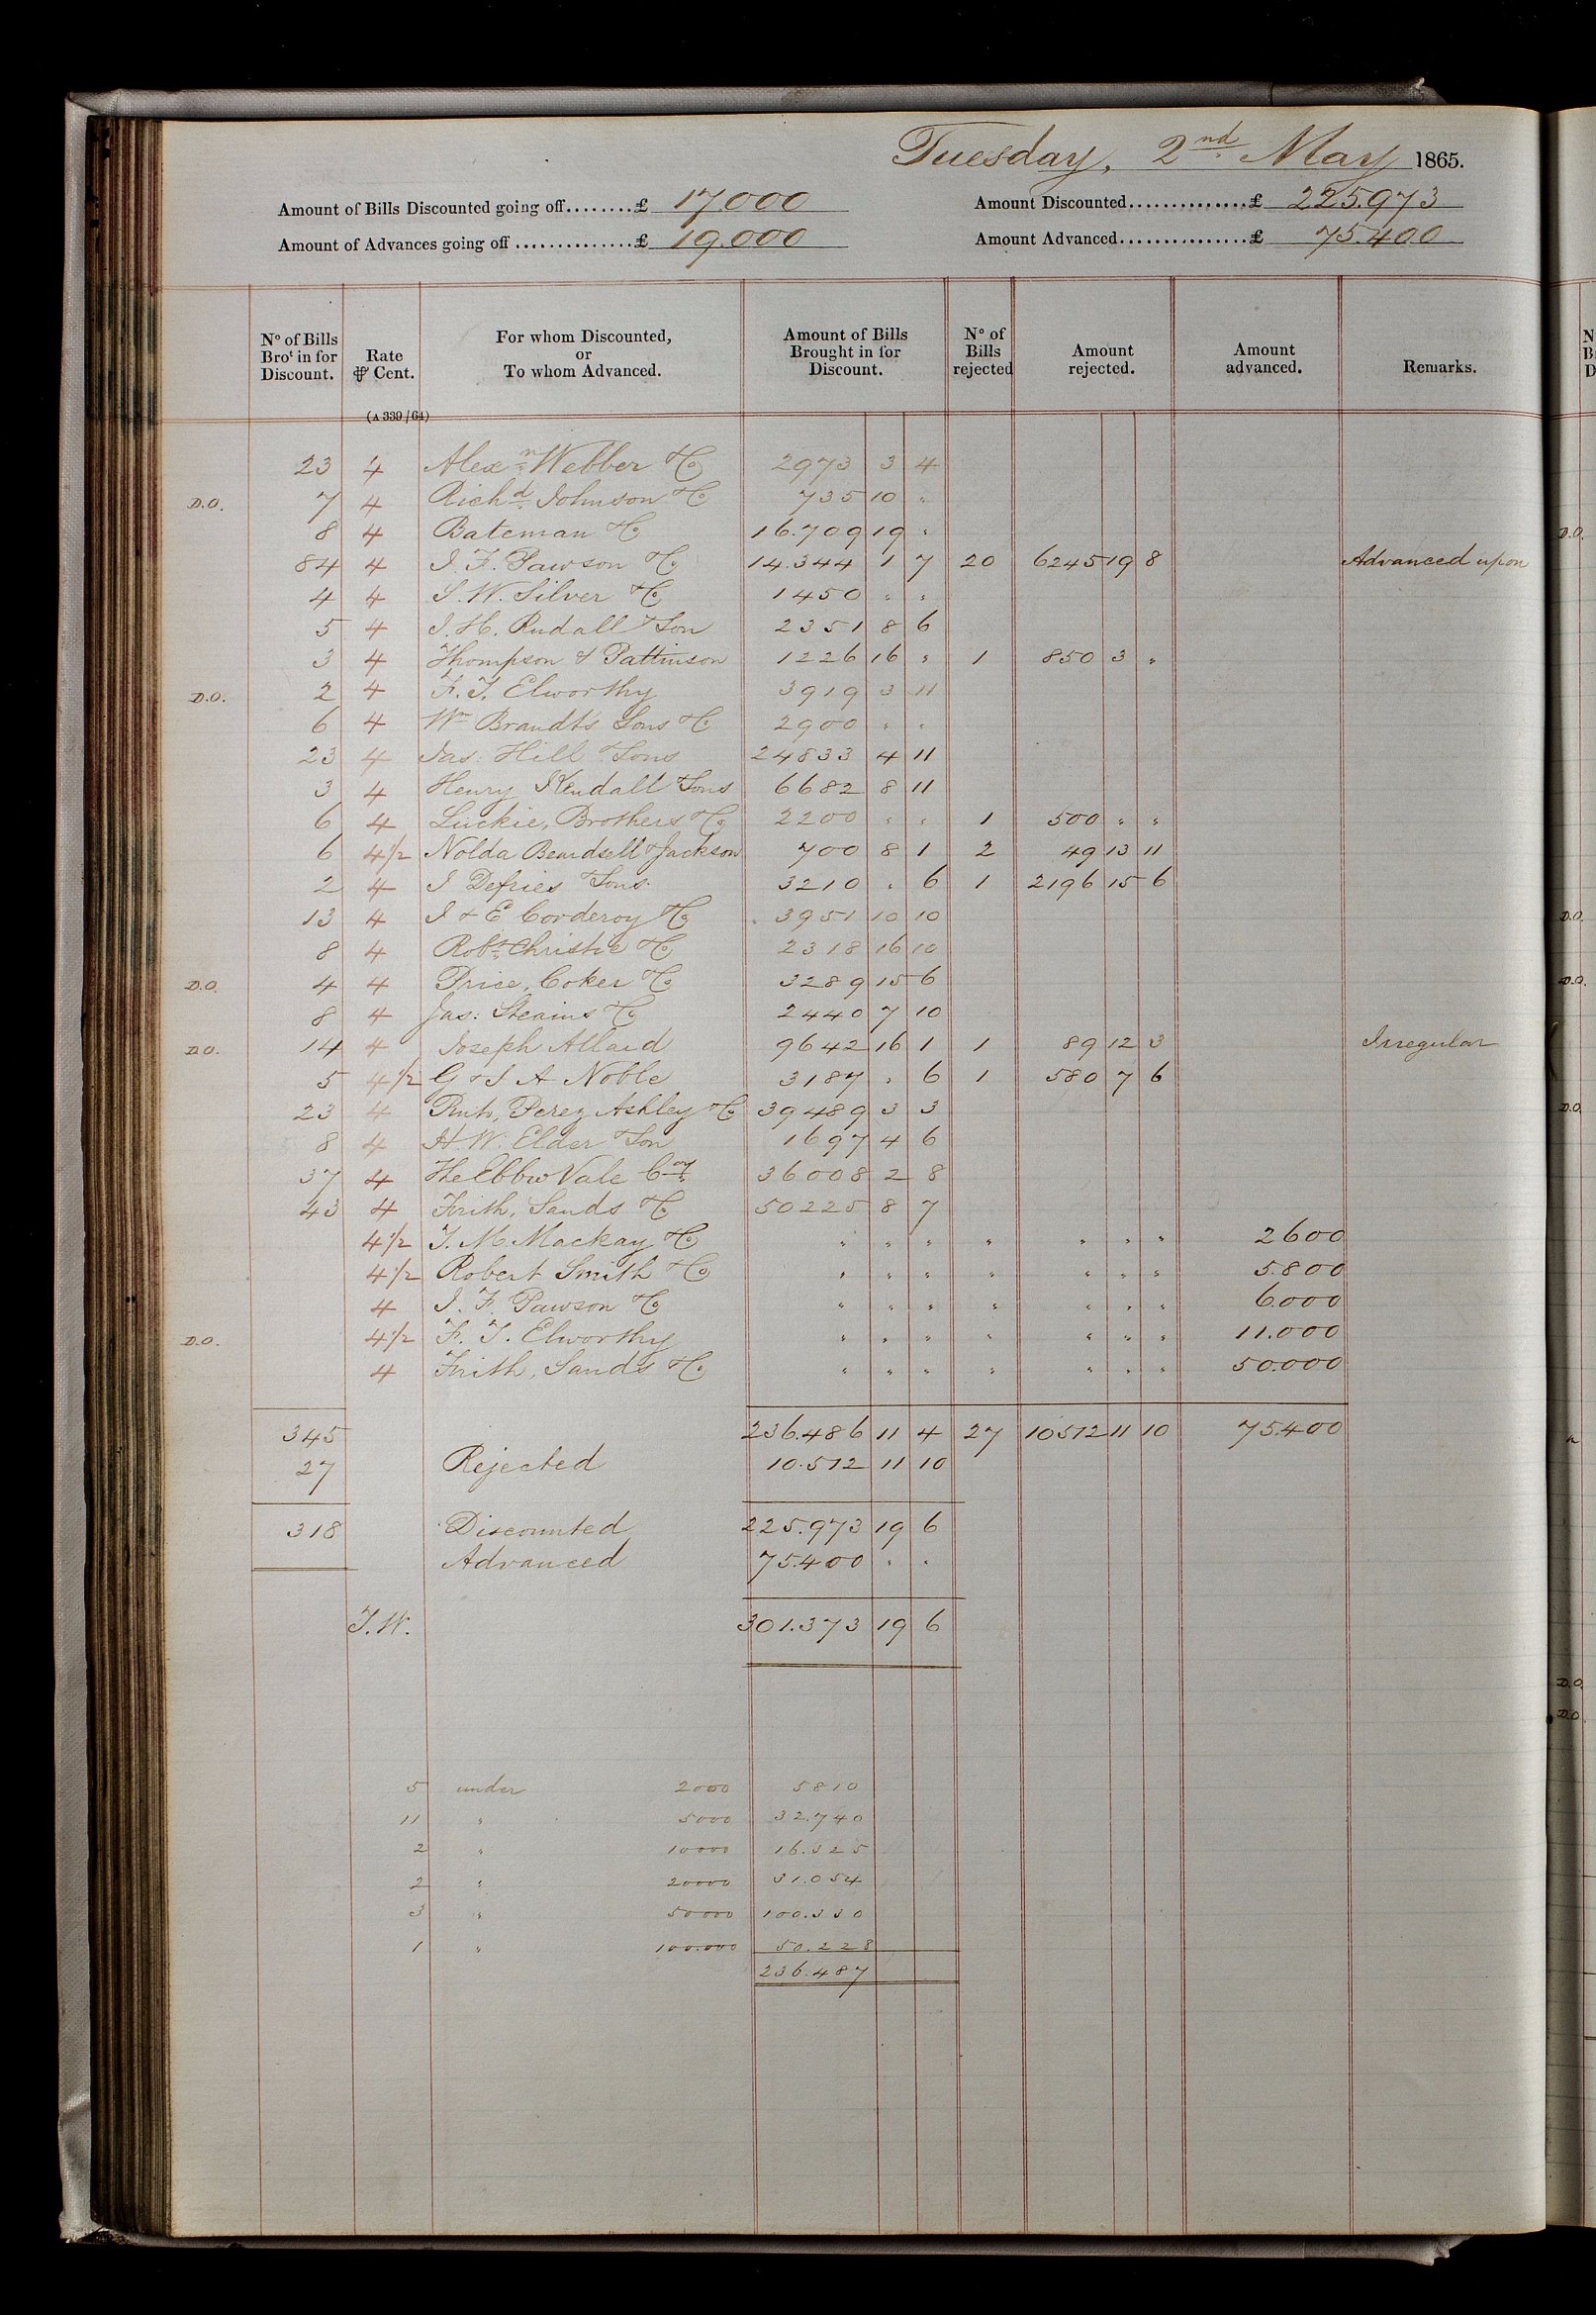 Tuesday, 2nd May 1865.
Amount of Bills Discounted going off........£ 17.000 Amount Discounted...............£ 225.973
Amount of Advances going off ..............£ 19.000 Amount Advanced................£ 75.400
No of Bills Brot in for Discount. Rate ⅌ Cent. For whom Discounted, or To whom Advanced. Amount of Bills Brought in for Discount. No of Bills rejected Amount rejected. Amount advanced. Remarks.
(A 339/64)
23 4 Alexn Webber & Co 2973 3 4
D.O. 7 4 Richd Johnson & Co 735 10 "
8 4 Bateman & Co 16.709 19 "
84 4 J. F. Pawson & Co 14.344 1 7 20 6245 19 8 Advanced upon
4 4 S. W. Silver & Co 1450 " "
5 4 J. H. Rudall & Son 2351 8 6
3 4 Thompson & Pattinson 1226 16 " 1 850 3 "
D.O. 2 4 F. T. Elworthy 3919 3 11
6 4 Wm Brandt's Sons & Co 2900 " "
23 4 Jas: Hill & Sons 24833 4 11
3 4 Henry Kendall & Sons 6682 8 11
6 4 Luckie, Brothers & Co 2200 " " 1 500 " "
6 4½ Nolda Beardsell & Jackson 700 8 1 2 49 13 11
2 4 J Defries & Sons 3210 " 6 1 2196 15 6
13 4 J & E Corderoy & Co 3951 10 10
8 4 Robt Christie & Co 2318 16 10
D.O. 4 4 Price, Coker & Co 3289 15 6
8 4 Jas: Steains & Co 2440 7 10
D.O. 14 4 Joseph Allard 9642 16 1 1 89 12 3 Irregular
5 4½ G & J A Noble 3187 " 6 1 580 7 6
23 4 Perez Ashley & Co 39489 3 3
8 4 H. W. Elder & Son 1697 4 6
37 4 The Ebbw Vale Coy 36008 2 8
43 4 Frith, Sands & Co 50225 8 7
4½ T. M. Mackay & Co " " " " " " " 2600
4½ Robert Smith & Co " " " " " " " 5.800
4 J. F. Pawson & Co " " " " " " " 6.000
D.O. 4½ F. T. Elworthy " " " " " " " 11.000
4 Frith, Sands & Co " " " " " " " 50.000
345 236.486 11 4 27 10512 11 10 75.400
27 Rejected 10.512 11 10
318 Discounted 225.973 19 6
Advanced 75.400 " "
T.W. 301.373 19 6
5 under 2000 5810
11 " 5000 32.740
2 " 10000 16.325
2 " 20000 31.054
3 " 50000 100.330
1 " 100.000 50.228
236.487